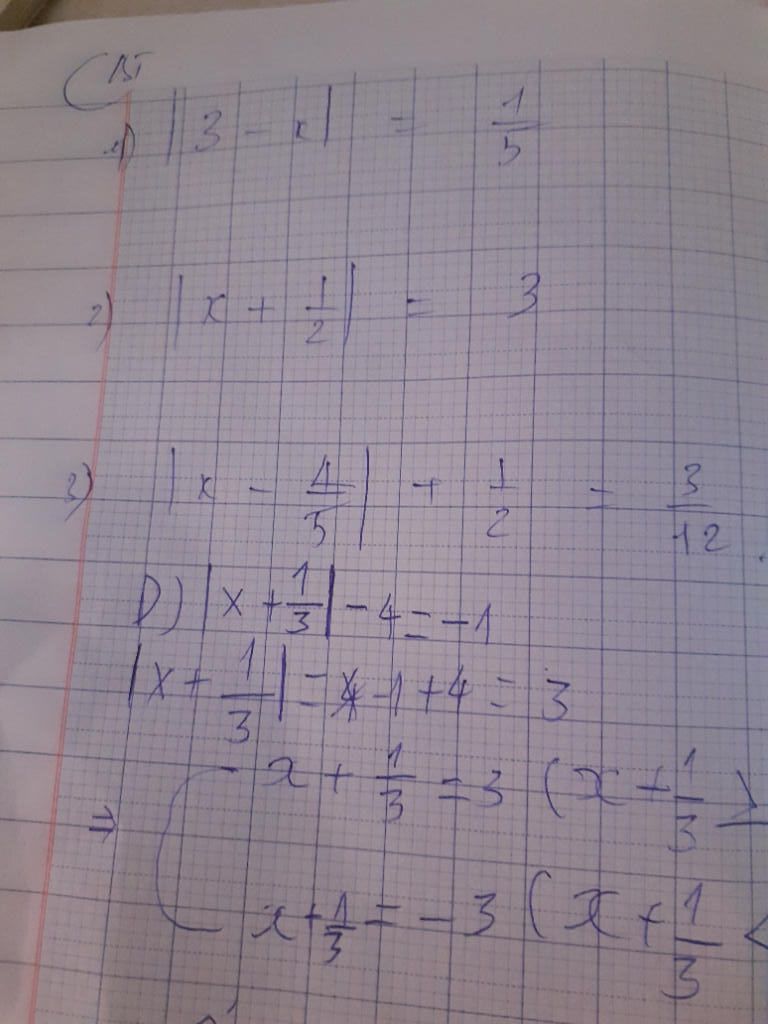 BT
1) |3 - x| = 1/5
2) |x + 1/2| = 3
3) |x - 4/5| + 1/2 = 3/12.
D) |x + 1/3| - 4 = -1
|x + 1/3| = -1 + 4 = 3
x + 1/3 = 3 (x + 1/3 ≥
⇒
x + 1/3 = -3 (x + 1/3 <